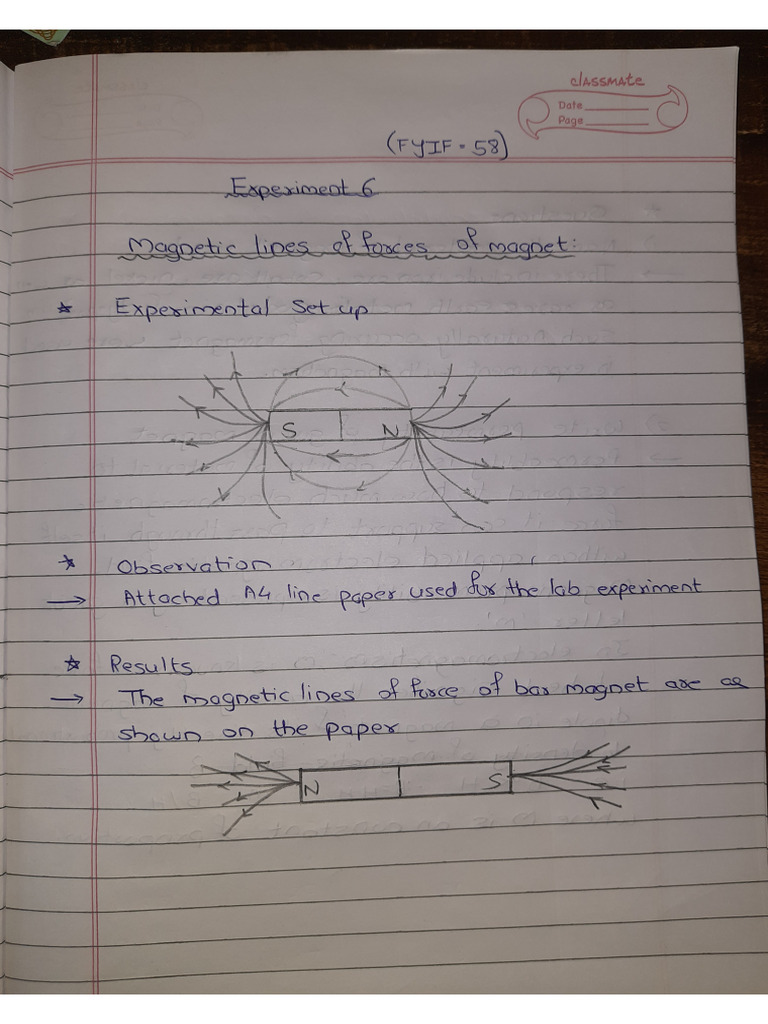 classmate
Date
Page
(FYIF - 58)
Experiment 6
Magnetic lines of forces of magnet:
* Experimental Set up
S N
* Observation
→ Attached A4 line paper used for the lab experiment
* Results
→ The magnetic lines of force of bar magnet are as
shown on the paper
N S